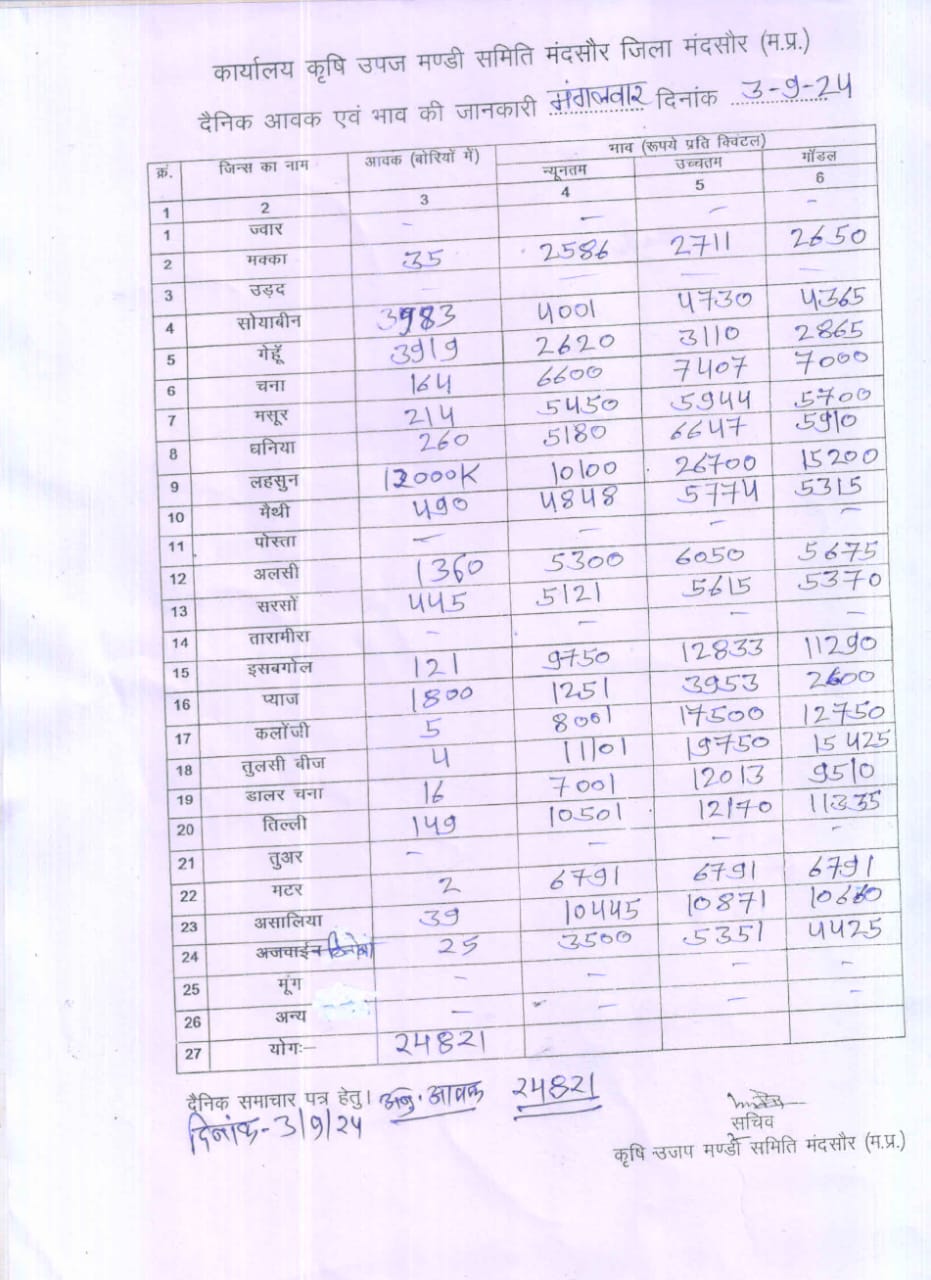 कार्यालय कृषि उपज मण्डी समिति मंदसौर जिला मंदसौर (म.प्र.)
दैनिक आवक एवं भाव की जानकारी मंगलवार दिनांक 3-9-24
क्रं. जिन्स का नाम आवक (बोरियों में) भाव (रूपये प्रति क्विंटल)
न्यूनतम उच्चतम मॉडल
1 2 3 4 5 6
1 ज्वार - - - -
2 मक्का 35 2586 2711 2650
3 उड़द - - - -
4 सोयाबीन 3983 4001 4730 4365
5 गेहूँ 3919 2620 3110 2865
6 चना 164 6600 7407 7000
7 मसूर 214 5450 5944 5700
8 धनिया 260 5180 6647 5910
9 लहसुन 12000K 10100 26700 15200
10 मैथी 490 4848 5774 5315
11 पोस्ता - - - -
12 अलसी 1360 5300 6050 5675
13 सरसों 445 5121 5615 5370
14 तारामीरा - - - -
15 इसबगोल 121 9750 12833 11290
16 प्याज 1800 1251 3953 2600
17 कलोंजी 5 8001 17500 12750
18 तुलसी बीज 4 11101 19750 15425
19 डालर चना 16 7001 12013 9510
20 तिल्ली 149 10501 12170 11335
21 तुअर - - - -
22 मटर 2 6791 6791 6791
23 असालिया 39 10445 10871 10660
24 अजवाईन 25 3500 5351 4425
25 मूंग - - - -
26 अन्य - - -
27 योगः- 24821
दैनिक समाचार पत्र हेतु। अनु. आवक 24821
दिनांक-3/9/24
सचिव
कृषि उजप मण्डी समिति मंदसौर (म.प्र.)